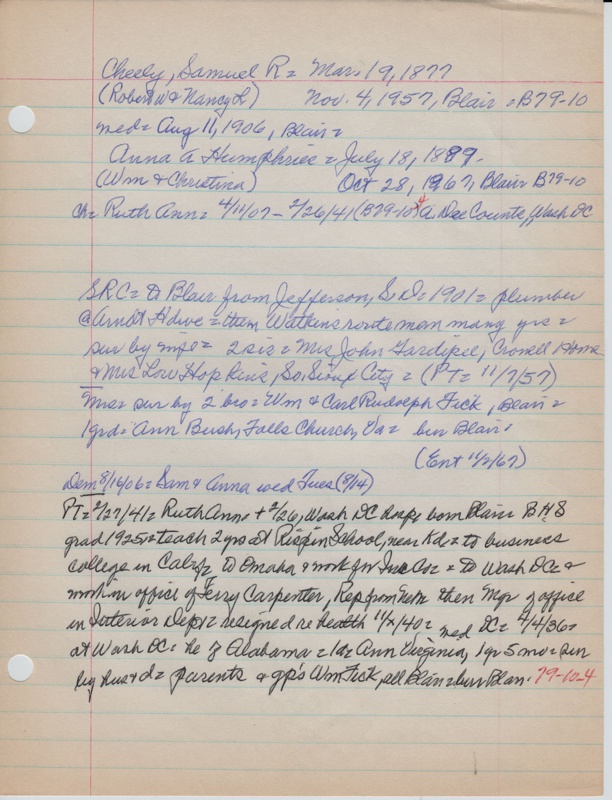 Cheely, Samuel R = Mar. 19, 1877
(Robert W & Nancy L) Nov. 4, 1957, Blair = B79-10
med = Aug 11, 1906, Blair =
Anna A Humphries = July 18, 1889.
(Wm & Christina) Oct 28, 1967, Blair B79-10
ch = Ruth Ann = 4/11/07 - 2/26/41 (B79-10) A. Dee Counts, Wash DC
SRC = to Blair from Jefferson, S.D. = 1901 = plumber
@ Arndt Hdwe = then Watkins route man many yrs =
sur by wife = 2 sis = Mrs John Gardipee, Crowell Home
& Mrs Low Hopkins, So. Sioux City = (PT = 11/7/57)
Mrs = sur by 2 bro = Wm & Carl Rudolph Fick, Blair =
1 grd = Ann Bush, Falls Church, Va = bur Blair.
(Ent 11/2/67)
Dem 8/16/06 = Sam & Anna wed Tues (8/14)
PT = 2/27/41 = Ruth Ann = + 2/26, Wash DC hosp, born Blair BHS
grad 1925 = teach 2 yrs at School, near Kd = to business
college in = to Omaha & work for Ins Co = to Wash DC = &
work in office of Terry Carpenter, Rep from Nebr then Mgr of office
in Interior Dept = resigned re health 11/1/40 = med DC = 4/4/36 =
at Wash DC = he of Alabama = 1 da Ann Virginia, 1 yr 5 mo = sur
by hus & d = parents & gp's Wm Fick, all Blair = bur Blair. 79-10-4